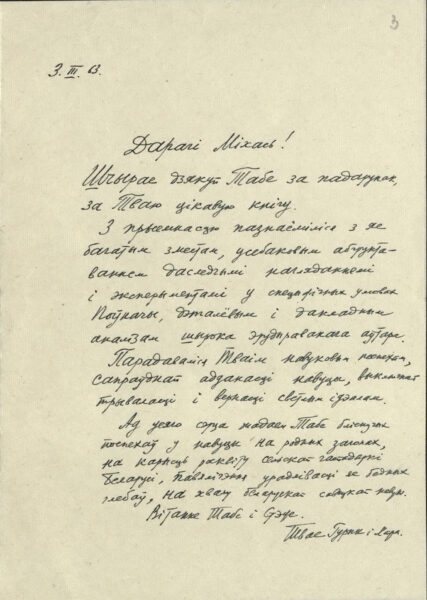 3
3. III. 63.
Дарагі Міхась!
Шчырае дзякуй Табе за падарунак,
за Тваю цікавую кнігу.
З прыемнасцю пазнаёміліся з яе
багатым зместам, усебаковым абгрунта-
ваннем даследчымі нагляданнямі
і эксперыментамі у спецыфічных умовах
дэталёвым і дакладным
аналізам шырока эрудыраванага аўтара.
Парадаваліся Тваім навуковым поспехам,
сапраўднай адданасці навуцы, выключнай
трываласці і вернасці светлым ідэалам.
Ад усяго сэрца жадаем Табе бліскучых
поспехаў у навуцы на родных загонах,
на карысць росквіту сельскай гаспадаркі
Беларусі, павышэння ураднівасці яе бедных
глебаў, на хвалу беларускай савецкай навукі.
Вітанне Табе і
Твае і